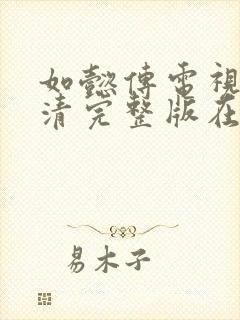 如懿傳電視
清完整版在
易木子